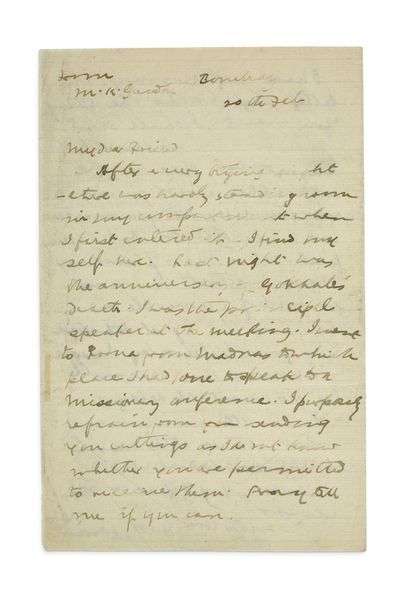 From
M. K. Gandhi Bombay
20th Feb
My dear friend
After a very trying night
- there was hardly standing room
in my compartment when
I first entered it - I find my
self here. Last night was
the anniversary Gokhale's
Death. I was the principal
speaker at the meeting. I went
to Poona from Madras to which
place I had gone to speak to a
Missionary conference. I purposely
refrain from sending
you cuttings as I do not know
whether you are permitted
to receive them. Pray tell
me if you can.